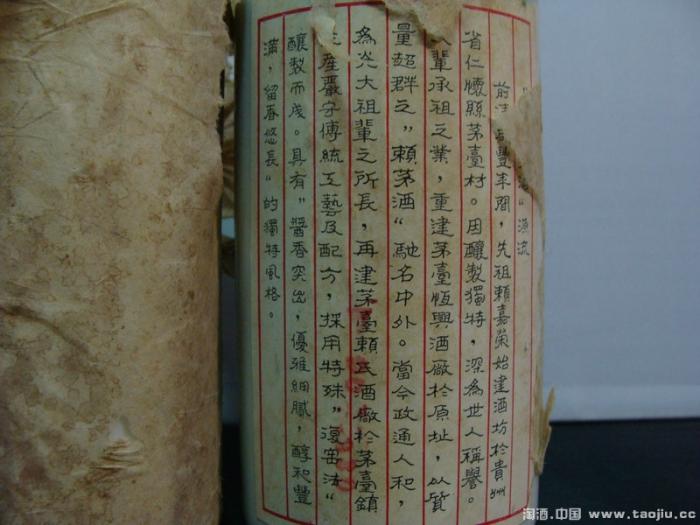 ”源流
前清 豐年間，先祖賴嘉榮始建酒坊於貴州
省仁懷縣茅臺村。因釀製獨特，深為世人稱譽。
輩承祖之業，重建茅臺恆興酒廠於原址，以質
量超群之”賴茅酒“馳名中外。當今政通人和，
為光大祖輩之所長，再建茅臺賴氏酒廠於茅臺鎮
生產嚴守傳統工藝及配方，採用特殊”復窖法“
釀製而成。具有”醬香突出，優雅細膩，醇和豐
滿，留香悠長“的獨特風格。
淘酒.中国 www.taojiu.cc